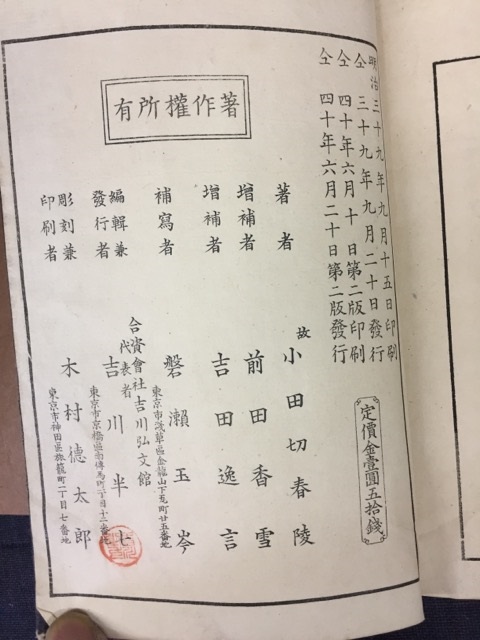 明治三十九年九月十五日印刷
仝三十九年九月二十日發行
仝四十年六月十日第二版印刷
仝四十年六月二十日第二版發行
定價金壹圓五拾錢
著作權所有
著者 故 小田切春陵
增補者 前田香雪
增補者 吉田逸言
補寫者 磐瀨玉岑
東京市淺草區金龍山下瓦町廿五番地
編輯兼發行者 合資會社吉川弘文館代表者 吉川半七
東京市京橋區南傳馬町一丁目十二番地
彫刻兼印刷者 木村德太郎
東京市神田區旅籠町二丁目七番地